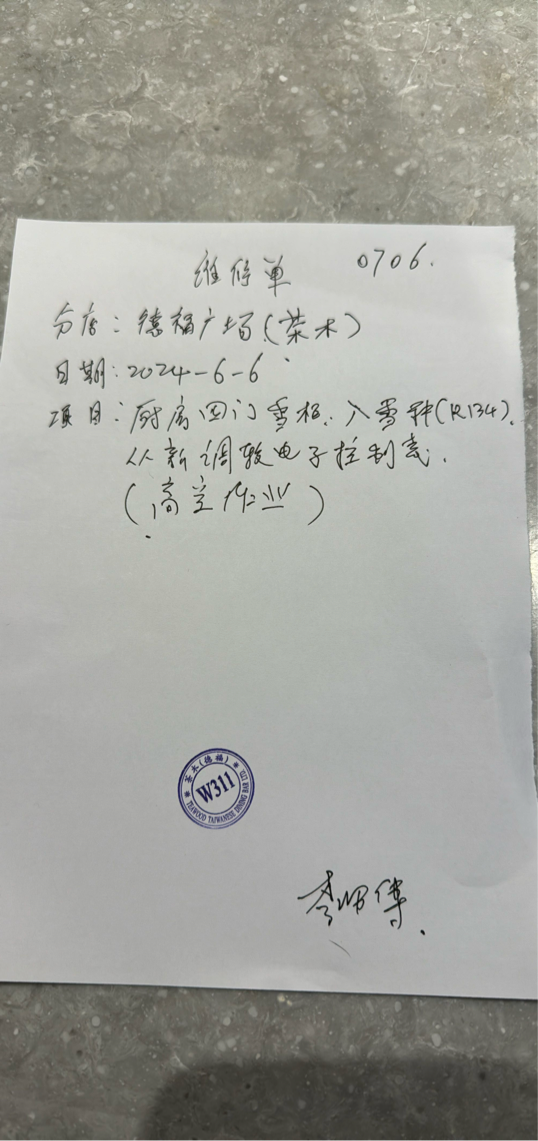 维修单 0706.
分店：德福广场(茶木)
日期：2024-6-6
项目：厨房四门雪柜.入雪种(R134).
从新调较电子控制表.
(高空作业)
茶木(德福)
W311
TEAWOOD TAIWANESE DINING BAR LTD.
李师傅.